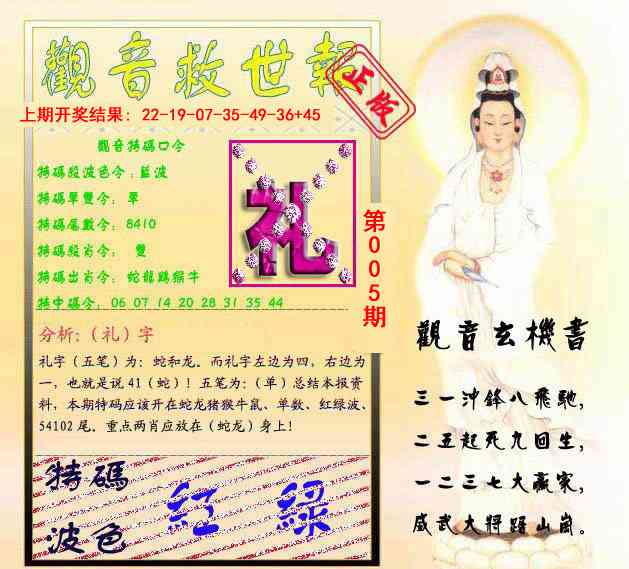 觀音救世報
正版
上期开奖结果：22-19-07-35-49-36+45
觀音特碼口令
特碼段波色令：藍波
特碼單雙令：單
特碼尾數令：8410
特碼段肖令：雙
特碼出肖令：蛇龍鷄猴牛
特中碼令：06 07 14 20 28 31 35 44
礼
第005期
分析：（礼）字
礼字（五笔）为：蛇和龙。而礼字左边为四，右边为
一，也就是说41（蛇）！五笔为：（单）总结本报资
料，本期特码应该开在蛇龙猪猴牛鼠、单数、红绿波、
54102尾。重点两肖应放在（蛇龙）身上！
特碼
波色
紅 綠
觀音玄機書
三一沖鋒八飛馳，
二五起死九回生，
一二三七大贏家，
威武大將踞山崗。